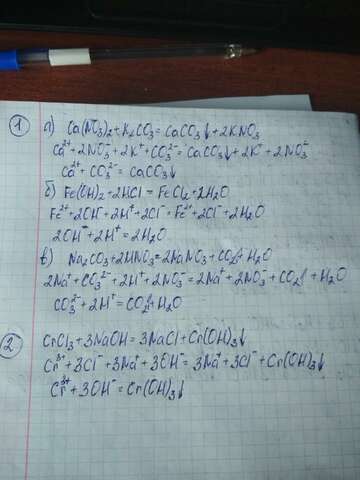 1 а) Ca(NO₃)₂+K₂CO₃=CaCO₃↓+2KNO₃
Ca²⁺+2NO₃⁻+2K⁺+CO₃²⁻=CaCO₃↓+2K⁺+2NO₃⁻
Ca²⁺+CO₃²⁻=CaCO₃↓
б) Fe(OH)₂+2HCl=FeCl₂+2H₂O
Fe²⁺+2OH⁻+2H⁺+2Cl⁻=Fe²⁺+2Cl⁻+2H₂O
2OH⁻+2H⁺=2H₂O
в) Na₂CO₃+2HNO₃=2NaNO₃+CO₂↑+H₂O
2Na⁺+CO₃²⁻+2H⁺+2NO₃⁻=2Na⁺+2NO₃⁻+CO₂↑+H₂O
CO₃²⁻+2H⁺=CO₂↑+H₂O
2 CrCl₃+3NaOH=3NaCl+Cr(OH)₃↓
Cr³⁺+3Cl⁻+3Na⁺+3OH⁻=3Na⁺+3Cl⁻+Cr(OH)₃↓
Cr³⁺+3OH⁻=Cr(OH)₃↓